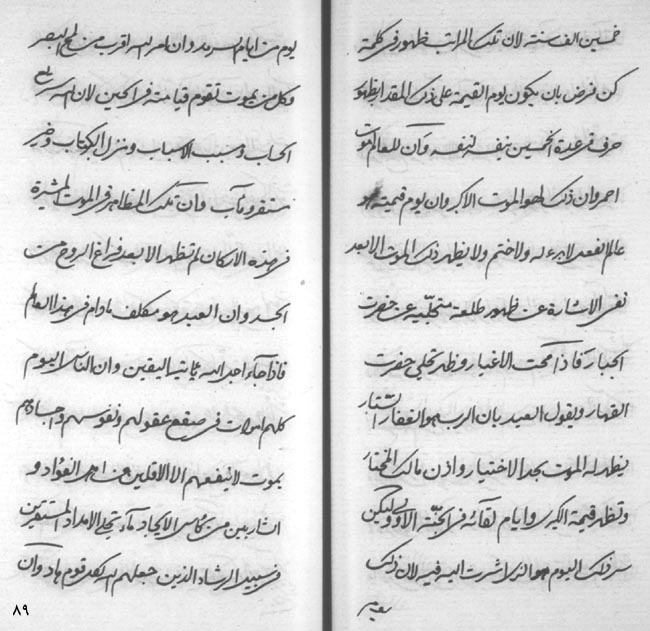 خمسين الف سنة لان تلك المراتب ظهور في كلمة
كن فرض بان يكون يوم القيمة على ذلك المقدار يظهر
حرف من عدة الخمسين بنفسه لنفسه وان للعالم موت
احمر وان ذلك لهو الموت الاكبر وان يوم قيمته هو
عالم الفعل لا بدء له ولا ختم ولا يظهر ذلك الموت الا بعد
نفي الاشارة عن ظهور طلعة متجلية عن حضرت
الجبار فاذا محت الاغيار وظهر تجلي حضرت
القهار ويقول العبد بان الرب هو الغفار الستار
يظهر له الموت بحد الاختيار واذن مالك المختار
وتظهر قيمة الكبرى وايام لقائه في الجنة الاولى وليكن
سر ذلك اليوم هو الذي اشرت اليه فيه لان ذلك
يوم من ايام السرمد وان امر الله اقرب من لمح البصر
وكل من يموت تقوم قيامته في الحين لان الله سريع
الحساب ومسبب الاسباب ومنزل الكتاب وخير
مستقر ومآب وان تلك المظاهر في الموت المشيرة
في هذه الاركان لم تظهر الا بعد فراغ الروح من
الجسد وان العبد هو مكلف مادام في هذا العالم
فاذا جاء اجل الله ياتيه اليقين وان الناس اليوم
كلهم اموات في صقع عقولهم ونفوسهم واجسادهم
بموت لا ينفعهم الا الاقلين من اهل الفؤاد و
الشاربين من كأس الايجاد ماء تجلي الامداد المستقرين
في سبيل الرشاد الذين جعلهم الله لكل قوم هاد وان
٨٩